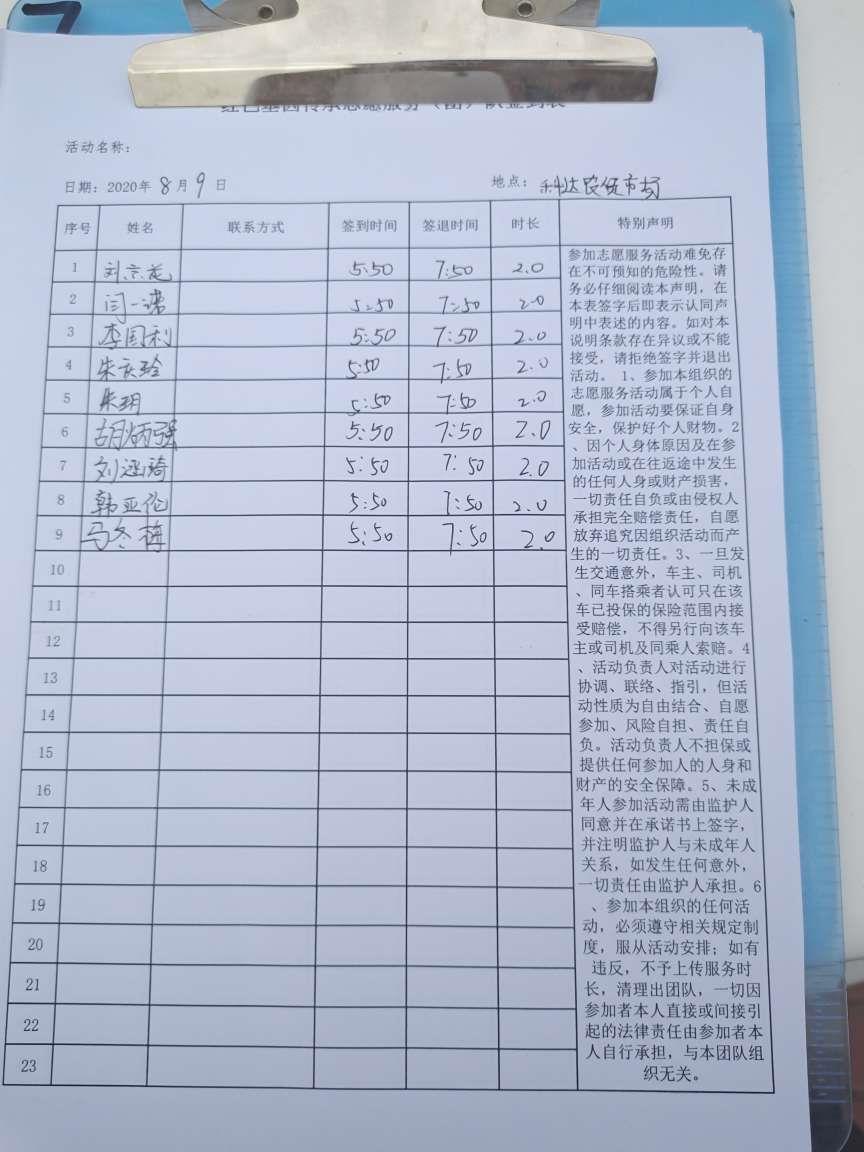 7
红色基因传承志愿服务（苗）队签到表
活动名称：
日期：2020年 8月 9日 地点：科达农贸市场
序号 姓名 联系方式 签到时间 签退时间 时长 特别声明
1 5:50 7:50 2.0
2 闫一 5:50 7:50 2.0
3 李国利 5:50 7:50 2.0
4 朱庆玲 5:50 7:50 2.0
5 朱玥 5:50 7:50 2.0
6 胡炳强 5:50 7:50 2.0
7 刘涵琦 5:50 7:50 2.0
8 韩亚伦 5:50 7:50 2.0
9 马冬梅 5:50 7:50 2.0
10
11
12
13
14
15
16
17
18
19
20
21
22
23
参加志愿服务活动难免存
在不可预知的危险性。请
务必仔细阅读本声明，在
本表签字后即表示认同声
明中表述的内容。如对本
说明条款存在异议或不能
接受，请拒绝签字并退出
活动。 1、参加本组织的
志愿服务活动属于个人自
愿，参加活动要保证自身
安全，保护好个人财物。2
、因个人身体原因及在参
加活动或在往返途中发生
的任何人身或财产损害，
一切责任自负或由侵权人
承担完全赔偿责任，自愿
放弃追究因组织活动而产
生的一切责任。3、一旦发
生交通意外，车主、司机
、同车搭乘者认可只在该
车已投保的保险范围内接
受赔偿，不得另行向该车
主或司机及同乘人索赔。4
、活动负责人对活动进行
协调、联络、指引，但活
动性质为自由结合、自愿
参加、风险自担、责任自
负。活动负责人不担保或
提供任何参加人的人身和
财产的安全保障。5、未成
年人参加活动需由监护人
同意并在承诺书上签字，
并注明监护人与未成年人
关系，如发生任何意外，
一切责任由监护人承担。6
、参加本组织的任何活
动，必须遵守相关规定制
度，服从活动安排；如有
违反，不予上传服务时
长，清理出团队，一切因
参加者本人直接或间接引
起的法律责任由参加者本
人自行承担，与本团队组
织无关。